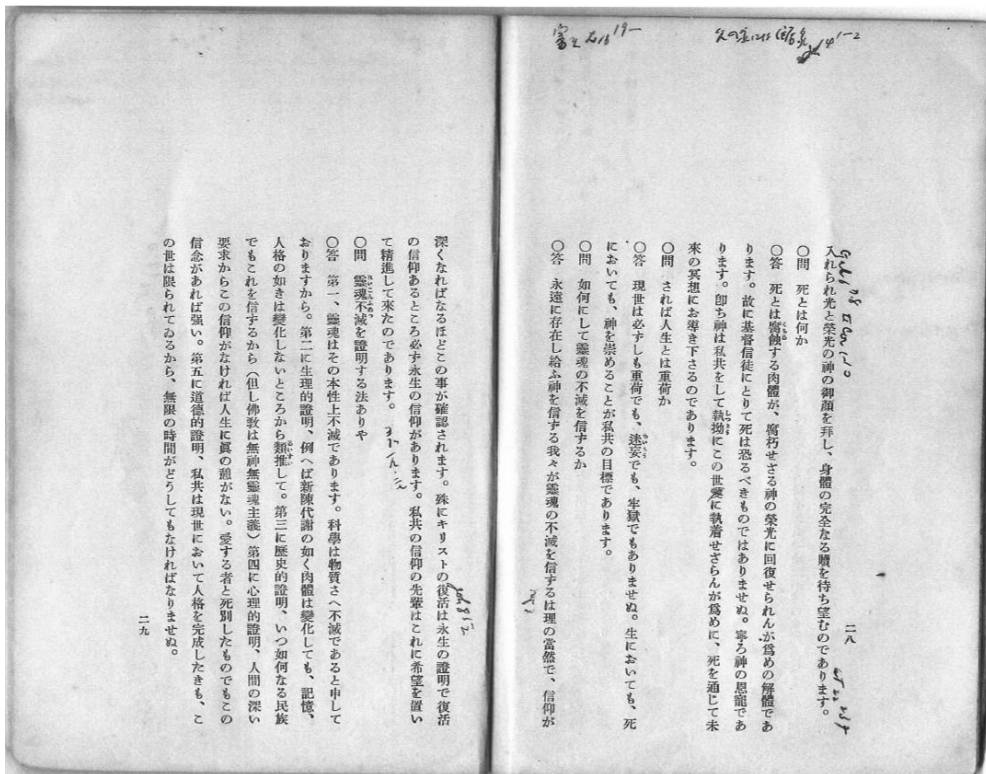 入れられ光と榮光の神の御顔を拜し、身體の完全なる贖を待ち望むのであります。
〇問　死とは何か
〇答　死とは腐蝕する肉體が、腐朽せざる神の榮光に回復せられんが爲めの解體であ
ります。故に基督信徒にとりて死は恐るべきものではありませぬ。寧ろ神の恩寵であ
ります。卽ち神は私共をして執拗にこの世に執着せざらんが爲めに、死を通じて未
來の冥想にお導き下さるのであります。
〇問　されば人生とは重荷か
〇答　現世は必ずしも重荷でも、迷妄でも、牢獄でもありませぬ。生においても、死
においても、神を崇めることが私共の目標であります。
〇問　如何にして靈魂の不滅を信ずるか
〇答　永遠に存在し給ふ神を信ずる我々が靈魂の不滅を信ずるは理の當然で、信仰が
二八
深くなればなるほどこの事が確認されます。殊にキリストの復活は永生の證明で復活
の信仰あるところ必ず永生の信仰があります。私共の信仰の先輩はこれに希望を置い
て精進して來たのであります。
〇問　靈魂不滅を證明する法ありや
〇答　第一、靈魂はその本性上不滅であります。科學は物質さへ不滅であると申して
おりますから。第二に生理的證明、例へば新陳代謝の如く肉體は變化しても、記憶、
人格の如きは變化しないところから類推して。第三に歷史的證明、いつ如何なる民族
でもこれを信ずるから（但し佛敎は無神無靈魂主義）第四に心理的證明、人間の深い
要求からこの信仰がなければ人生に眞の憩がない。愛する者と死別したものでもこの
信念があれば强い。第五に道德的證明、私共は現世において人格を完成したきも、こ
の世は限られてゐるから、無限の時間がどうしてもなければなりませぬ。
二九